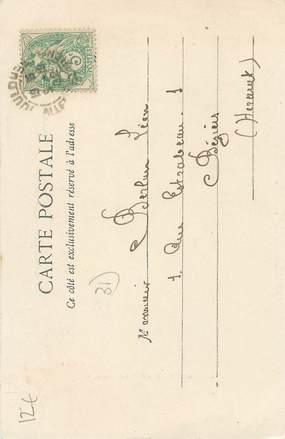 CARTE POSTALE
Ce côté est exclusivement réservé à l'adresse
Monsieur Léon
1 Rue 1
Béziers
(Hérault)
31
12€